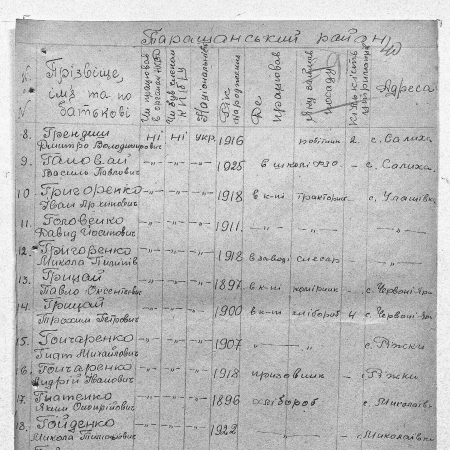 Таращанський район
№
№
Прізвище, імя та по батькові
Чи працював в органах НКВД
Чи був членом КП(б)У
Національність
Рік народження
Де працював
Яку займав посаду
Кількість
Адреса
8. Грендиш Дмитро Володимирович ні ні укр. 1916 робітник 2. с. Салиха
9 Гайовай Василь Павлович —„— —„— —„— 1925 в школі ФЗО. — с. Салиха.
10. Григоренко Іван Архипович —„— —„— —„— 1918 в к-пі тракторист — с. Улашівка
11. Головенко Давид Йосипович —„— —„— —„— 1911. —„— —„— —„—
12. Григоренко Микола Пилипів —„— —„— —„— 1918 в заводі слесар —„—
13. Грицай Павло Оксентієвич —„— —„— —„— 1897 в к-пі комірник — с. Червоні Яри
14. Грицай Трохим Петрович —„— —„— —„— 1900 в к-пі хлібороб 4 с. Червоні Яри
15. Гончаренко Гнат Михайлович —„— —„— —„— 1907 —„— с. Ріжки
16. Гончаренко Андрій Іванович —„— —„— —„— 1918 призовник — с. Ріжки
17. Гнатенко Яким Онопрійович —„— —„— —„— 1896 хлібороб с. Миколаївк
18. Гойденко Микола Тимошович —„— —„— —„— 1922 —„— с. Миколаївк